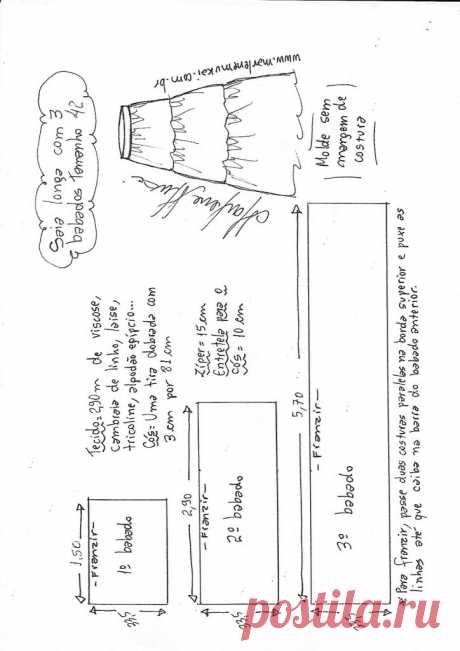 Saia longa com 3
babados Tamanho 42
www.marlenemukai.com.br
Molde sem
margem de
costura
Tecido=2,90m de viscose,
cambraia de linho, laise,
tricoline, algodão egípcio...
Cós= Uma tira dobrada com
3 cm por 81 cm
Zíper=15 cm
Entretela para o
cós= 10 cm
1,50
-Franzir-
1º babado
2,90
-Franzir-
2º babado
5,70
-Franzir-
3º babado
Para franzir, passe duas costuras paralelas na borda superior e puxe as
linhas até que caiba na barra do babado anterior.
postila.ru